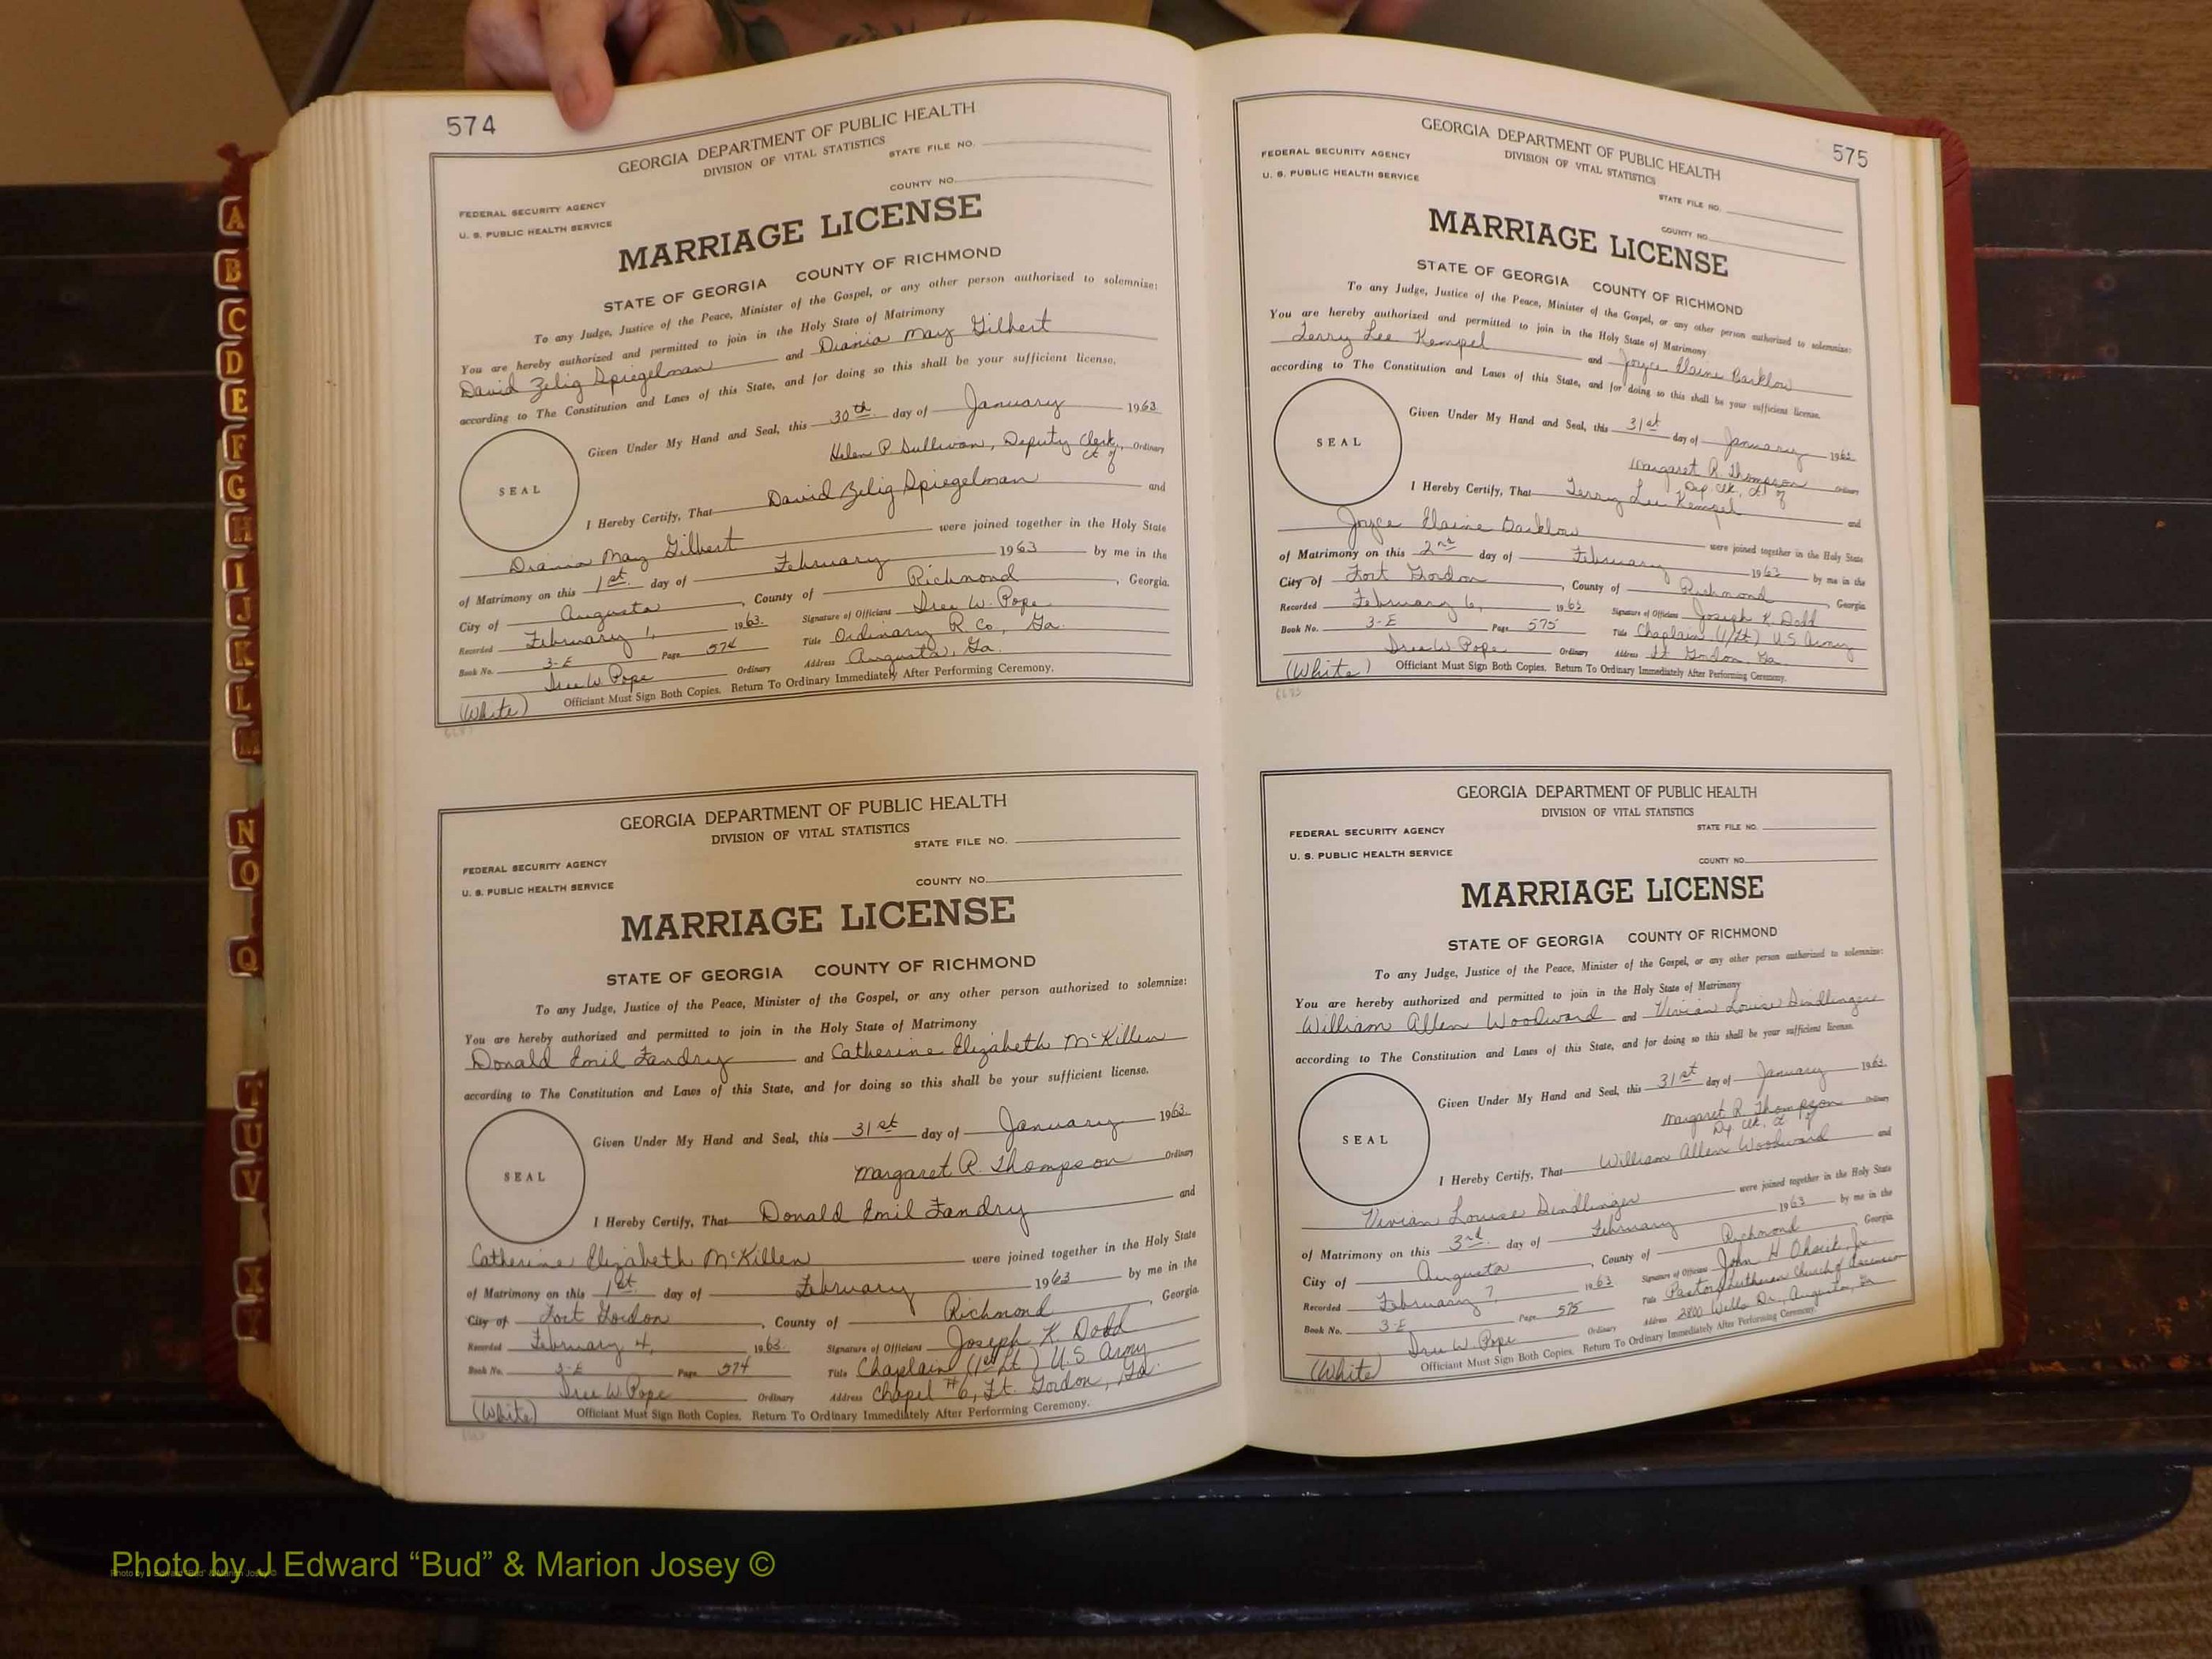 574
GEORGIA DEPARTMENT OF PUBLIC HEALTH
DIVISION OF VITAL STATISTICS
STATE FILE NO.
COUNTY NO.
FEDERAL SECURITY AGENCY
U. S. PUBLIC HEALTH SERVICE
MARRIAGE LICENSE
STATE OF GEORGIA COUNTY OF RICHMOND
To any Judge, Justice of the Peace, Minister of the Gospel, or any other person authorized to solemnize:
You are hereby authorized and permitted to join in the Holy State of Matrimony
David Zelig Spiegelman and Diania May Gilbert
according to The Constitution and Laws of this State, and for doing so this shall be your sufficient license.
Given Under My Hand and Seal, this 30th day of January 1963
Helen P. Sullivan, Deputy Clerk, Ordinary
Ct of
SEAL
I Hereby Certify, That David Zelig Spiegelman and
Diania May Gilbert were joined together in the Holy State
of Matrimony on this 1st day of February 1963 by me in the
City of Augusta, County of Richmond, Georgia.
Recorded February 1, 1963. Signature of Officiant W. Pope
Book No. 3-E Page 574 Title Ordinary R. Co., Ga.
W. Pope Ordinary Address Augusta, Ga.
(White) Officiant Must Sign Both Copies. Return To Ordinary Immediately After Performing Ceremony.
GEORGIA DEPARTMENT OF PUBLIC HEALTH
DIVISION OF VITAL STATISTICS
STATE FILE NO.
COUNTY NO.
FEDERAL SECURITY AGENCY
U. S. PUBLIC HEALTH SERVICE
MARRIAGE LICENSE
STATE OF GEORGIA COUNTY OF RICHMOND
To any Judge, Justice of the Peace, Minister of the Gospel, or any other person authorized to solemnize:
You are hereby authorized and permitted to join in the Holy State of Matrimony
Donald Emil Fandry and Catherine Elizabeth McKillen
according to The Constitution and Laws of this State, and for doing so this shall be your sufficient license.
Given Under My Hand and Seal, this 31st day of January 1963
Margaret R. Thompson Ordinary
SEAL
I Hereby Certify, That Donald Emil Fandry and
Catherine Elizabeth McKillen were joined together in the Holy State
of Matrimony on this 1st day of February 1963 by me in the
City of Fort Gordon, County of Richmond, Georgia
Recorded February 4, 1963. Signature of Officiant Joseph K. Dodd
Book No. 3-E Page 574 Title Chaplain (1st Lt) U.S. Army
W. Pope Ordinary Address Chapel #6, Ft. Gordon, Ga.
(White) Officiant Must Sign Both Copies. Return To Ordinary Immediately After Performing Ceremony.
575
GEORGIA DEPARTMENT OF PUBLIC HEALTH
DIVISION OF VITAL STATISTICS
FEDERAL SECURITY AGENCY
U. S. PUBLIC HEALTH SERVICE
STATE FILE NO.
COUNTY NO.
MARRIAGE LICENSE
STATE OF GEORGIA COUNTY OF RICHMOND
To any Judge, Justice of the Peace, Minister of the Gospel, or any other person authorized to solemnize:
You are hereby authorized and permitted to join in the Holy State of Matrimony
Terry Lee Kempel and Joyce Elaine Barklow
according to The Constitution and Laws of this State, and for doing so this shall be your sufficient license.
Given Under My Hand and Seal, this 31st day of January 1963
Margaret R. Thompson Ordinary
Dep. Clk. Ct. of
SEAL
I Hereby Certify, That Terry Lee Kempel and
Joyce Elaine Barklow were joined together in the Holy State
of Matrimony on this 2nd day of February 1963 by me in the
City of Fort Gordon, County of Richmond, Georgia
Recorded February 6, 1963 Signature of Officiant Joseph K. Dodd
Book No. 3-E Page 575 Title Chaplain (1/Lt) U.S. Army
W. Pope Ordinary Address Ft Gordon, Ga.
(White) Officiant Must Sign Both Copies. Return To Ordinary Immediately After Performing Ceremony.
GEORGIA DEPARTMENT OF PUBLIC HEALTH
DIVISION OF VITAL STATISTICS
STATE FILE NO.
FEDERAL SECURITY AGENCY
U. S. PUBLIC HEALTH SERVICE
COUNTY NO.
MARRIAGE LICENSE
STATE OF GEORGIA COUNTY OF RICHMOND
To any Judge, Justice of the Peace, Minister of the Gospel, or any other person authorized to solemnize:
You are hereby authorized and permitted to join in the Holy State of Matrimony
William Allen Woodward and Vivian Louise Dindlinger
according to The Constitution and Laws of this State, and for doing so this shall be your sufficient license.
Given Under My Hand and Seal, this 31st day of January 1963
Margaret R. Thompson Ordinary
Dep. Clk. Ct. of
SEAL
I Hereby Certify, That William Allen Woodward and
Vivian Louise Dindlinger were joined together in the Holy State
of Matrimony on this 3rd day of February 1963 by me in the
City of Augusta, County of Richmond, Georgia
Recorded February 7, 1963 Signature of Officiant John H. Jr.
Book No. 3-E Page 575 Title Pastor Lutheran Church of Ascension
W. Pope Ordinary Address Dr., Augusta, Ga
(White) Officiant Must Sign Both Copies. Return To Ordinary Immediately After Performing Ceremony.
A
B
C
D
E
F
G
H
I
J
K
L
M
N
O
Q
T
U
V
X
Photo by J Edward “Bud” & Marion Josey ©
Photo by J Edward “Bud” & Marion Josey ©